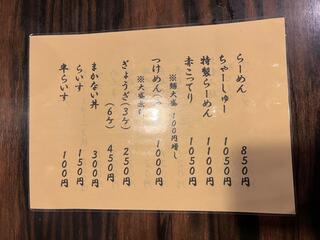 らーめん 850円
ちゃーしゅー 1050円
特製らーめん 1100円
赤こってり 1050円
※麺大盛 100円増し
つけめん 1000円
※大盛
ぎょうざ(3ケ) 250円
(6ケ) 450円
まかない丼 300円
らいす 150円
半らいす 100円